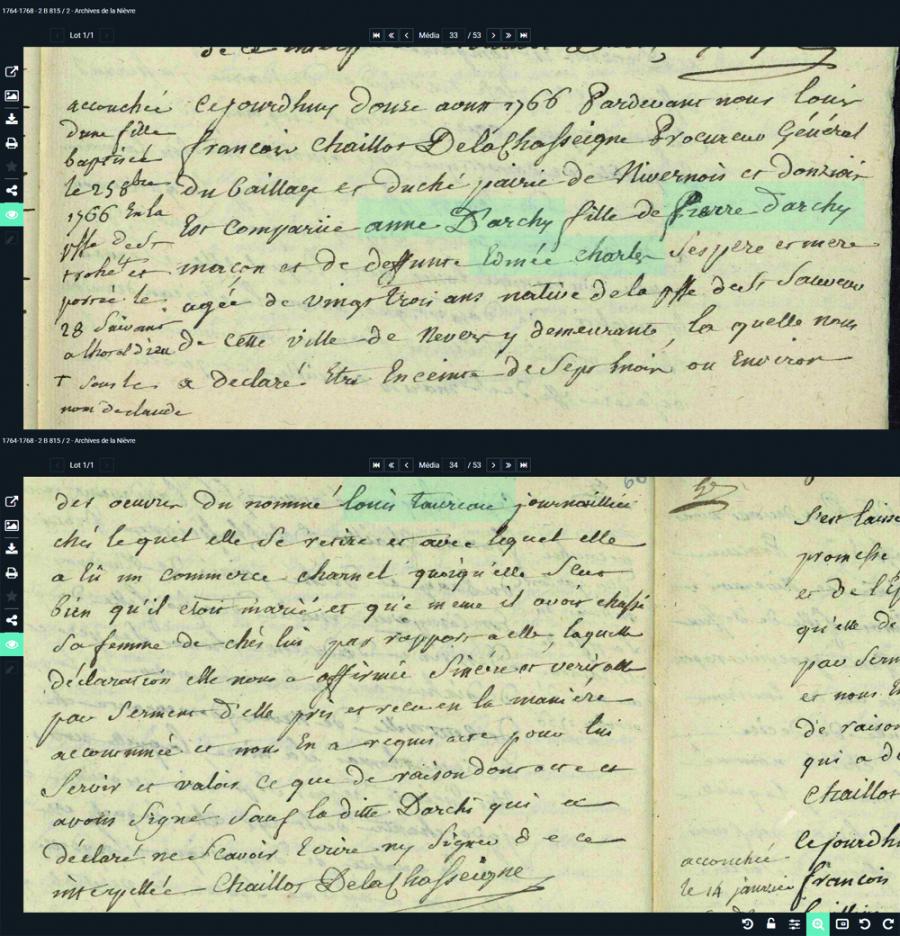 1764-1768 - 2 B 815 / 2 - Archives de la Nièvre
Lot 1/1
Média 33 / 53
accouchée
d'une fille
baptisée
le 25 8bre
1766 En la
psse de St
trohé et
portée le
28 Suivant
a lhotal d'ieu
+ sous le
nom de claude
Cejourdhuy douze aoust 1766 Pardevant nous louis
françois Chaillot DelaChasseigne Procureur Général
du Baillage et duché pairie de Nivernois et donziois
Est Comparüe anne D'archy fille de pierre darchy
maçon et de deffunte Edmée charles Ses pere et mere
agée de vingt trois ans native de la psse de St Sauveur
de cette ville de Nevers y demeurante, la quelle nous
a declaré Etre Enceinte de Sept mois ou Environ
1764-1768 - 2 B 815 / 2 - Archives de la Nièvre
Lot 1/1
Média 34 / 53
des oeuvres du nommé louis taureau journaillier
chés lequel elle Se retire et avec lequel elle
a Eû un commerce charnel quoiqu'elle Scut
bien qu'il etoit marié et que meme il avoit chassé
Sa femme de chés lui par rapport a elle, laquelle
déclaration elle nous a affirmée Sincere et veritable
par Serment d'elle pris et receu en la manière
accoutumée et nous En a requis acte pour lui
Servir et valoir ce que de raison dont acte et
avons Signé Sauf la ditte Darchi qui a
déclaré ne Scavoir Ecrire ny Signer d e ce
interpellée Chaillot DelaChasseigne
S'est laissé
promesse
et de l'E
qu'elle de
par Serm
et nous En
de raison
qui a de
Chaillot
accouchée
le 14 janvier
Cejourdh
françois